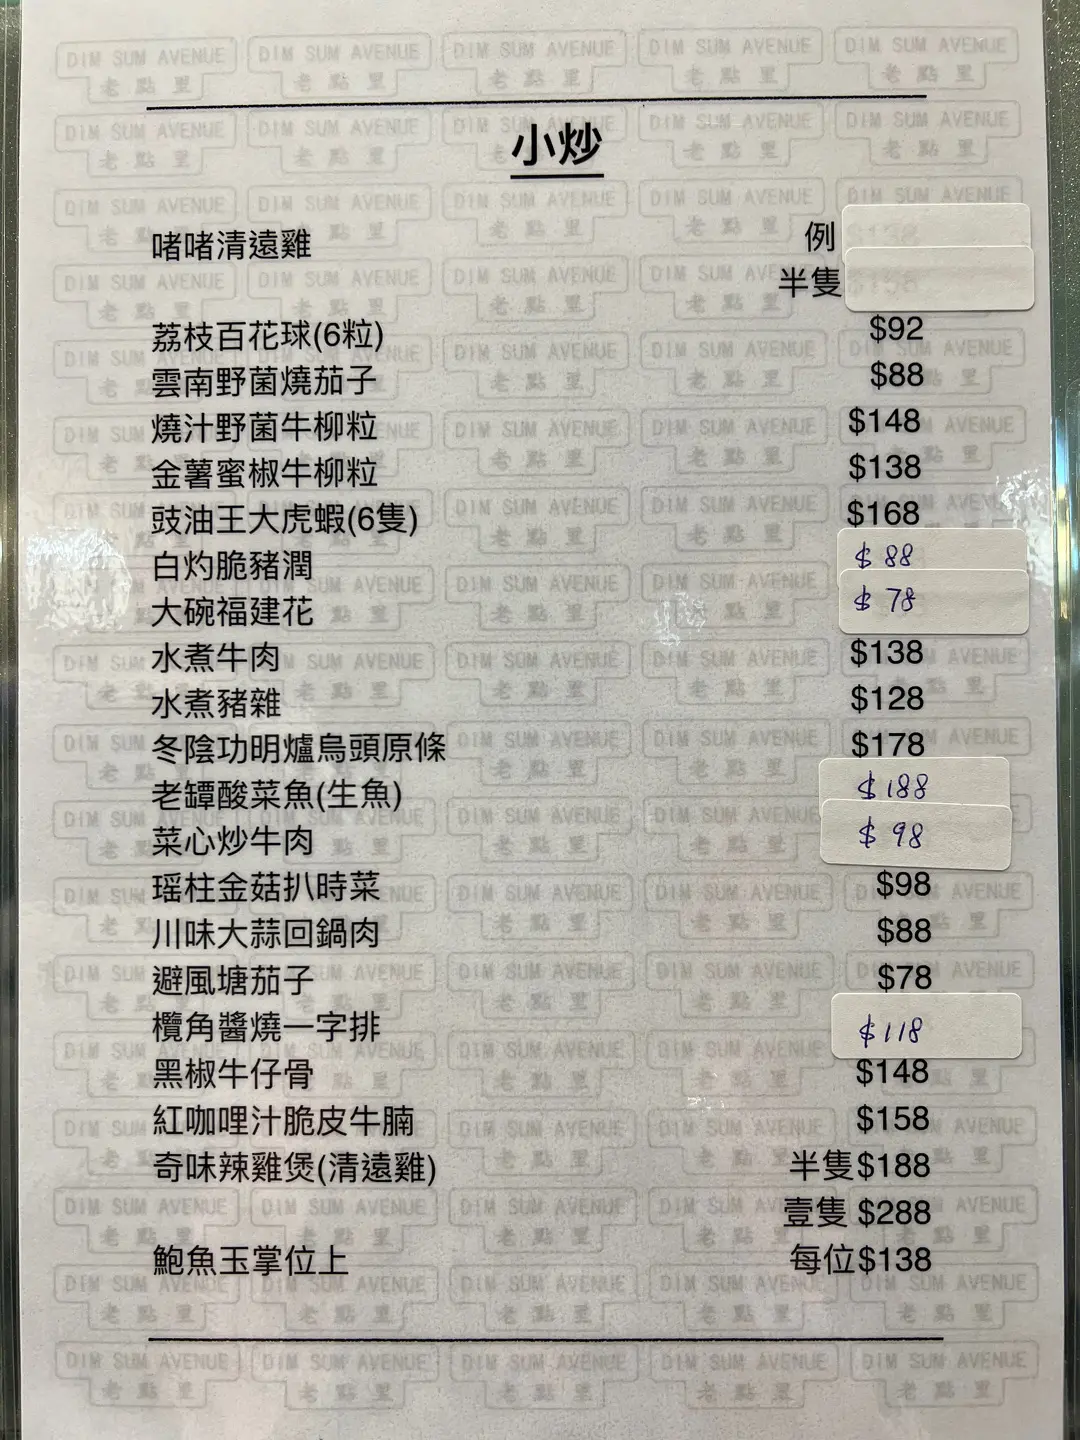 小炒
啫啫清遠雞 例
半隻
荔枝百花球(6粒) $92
雲南野菌燒茄子 $88
燒汁野菌牛柳粒 $148
金薯蜜椒牛柳粒 $138
豉油王大虎蝦(6隻) $168
白灼脆豬潤 $88
大碗福建花 $78
水煮牛肉 $138
水煮豬雜 $128
冬陰功明爐烏頭原條 $178
老罈酸菜魚(生魚) $188
菜心炒牛肉 $98
瑶柱金菇扒時菜 $98
川味大蒜回鍋肉 $88
避風塘茄子 $78
欖角醬燒一字排 $118
黑椒牛仔骨 $148
紅咖哩汁脆皮牛腩 $158
奇味辣雞煲(清遠雞) 半隻$188
壹隻 $288
鮑魚玉掌位上 每位$138
DIM SUM AVENUE
老點里